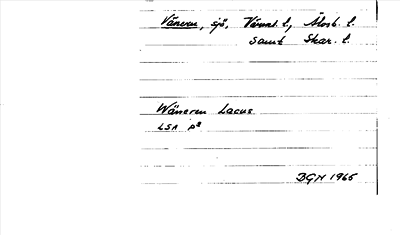 Vänern, sjö, Värml. l., Älvsb. l.
samt Skar. l.
Wäneren Lacus
LSA p2
DGN 1965